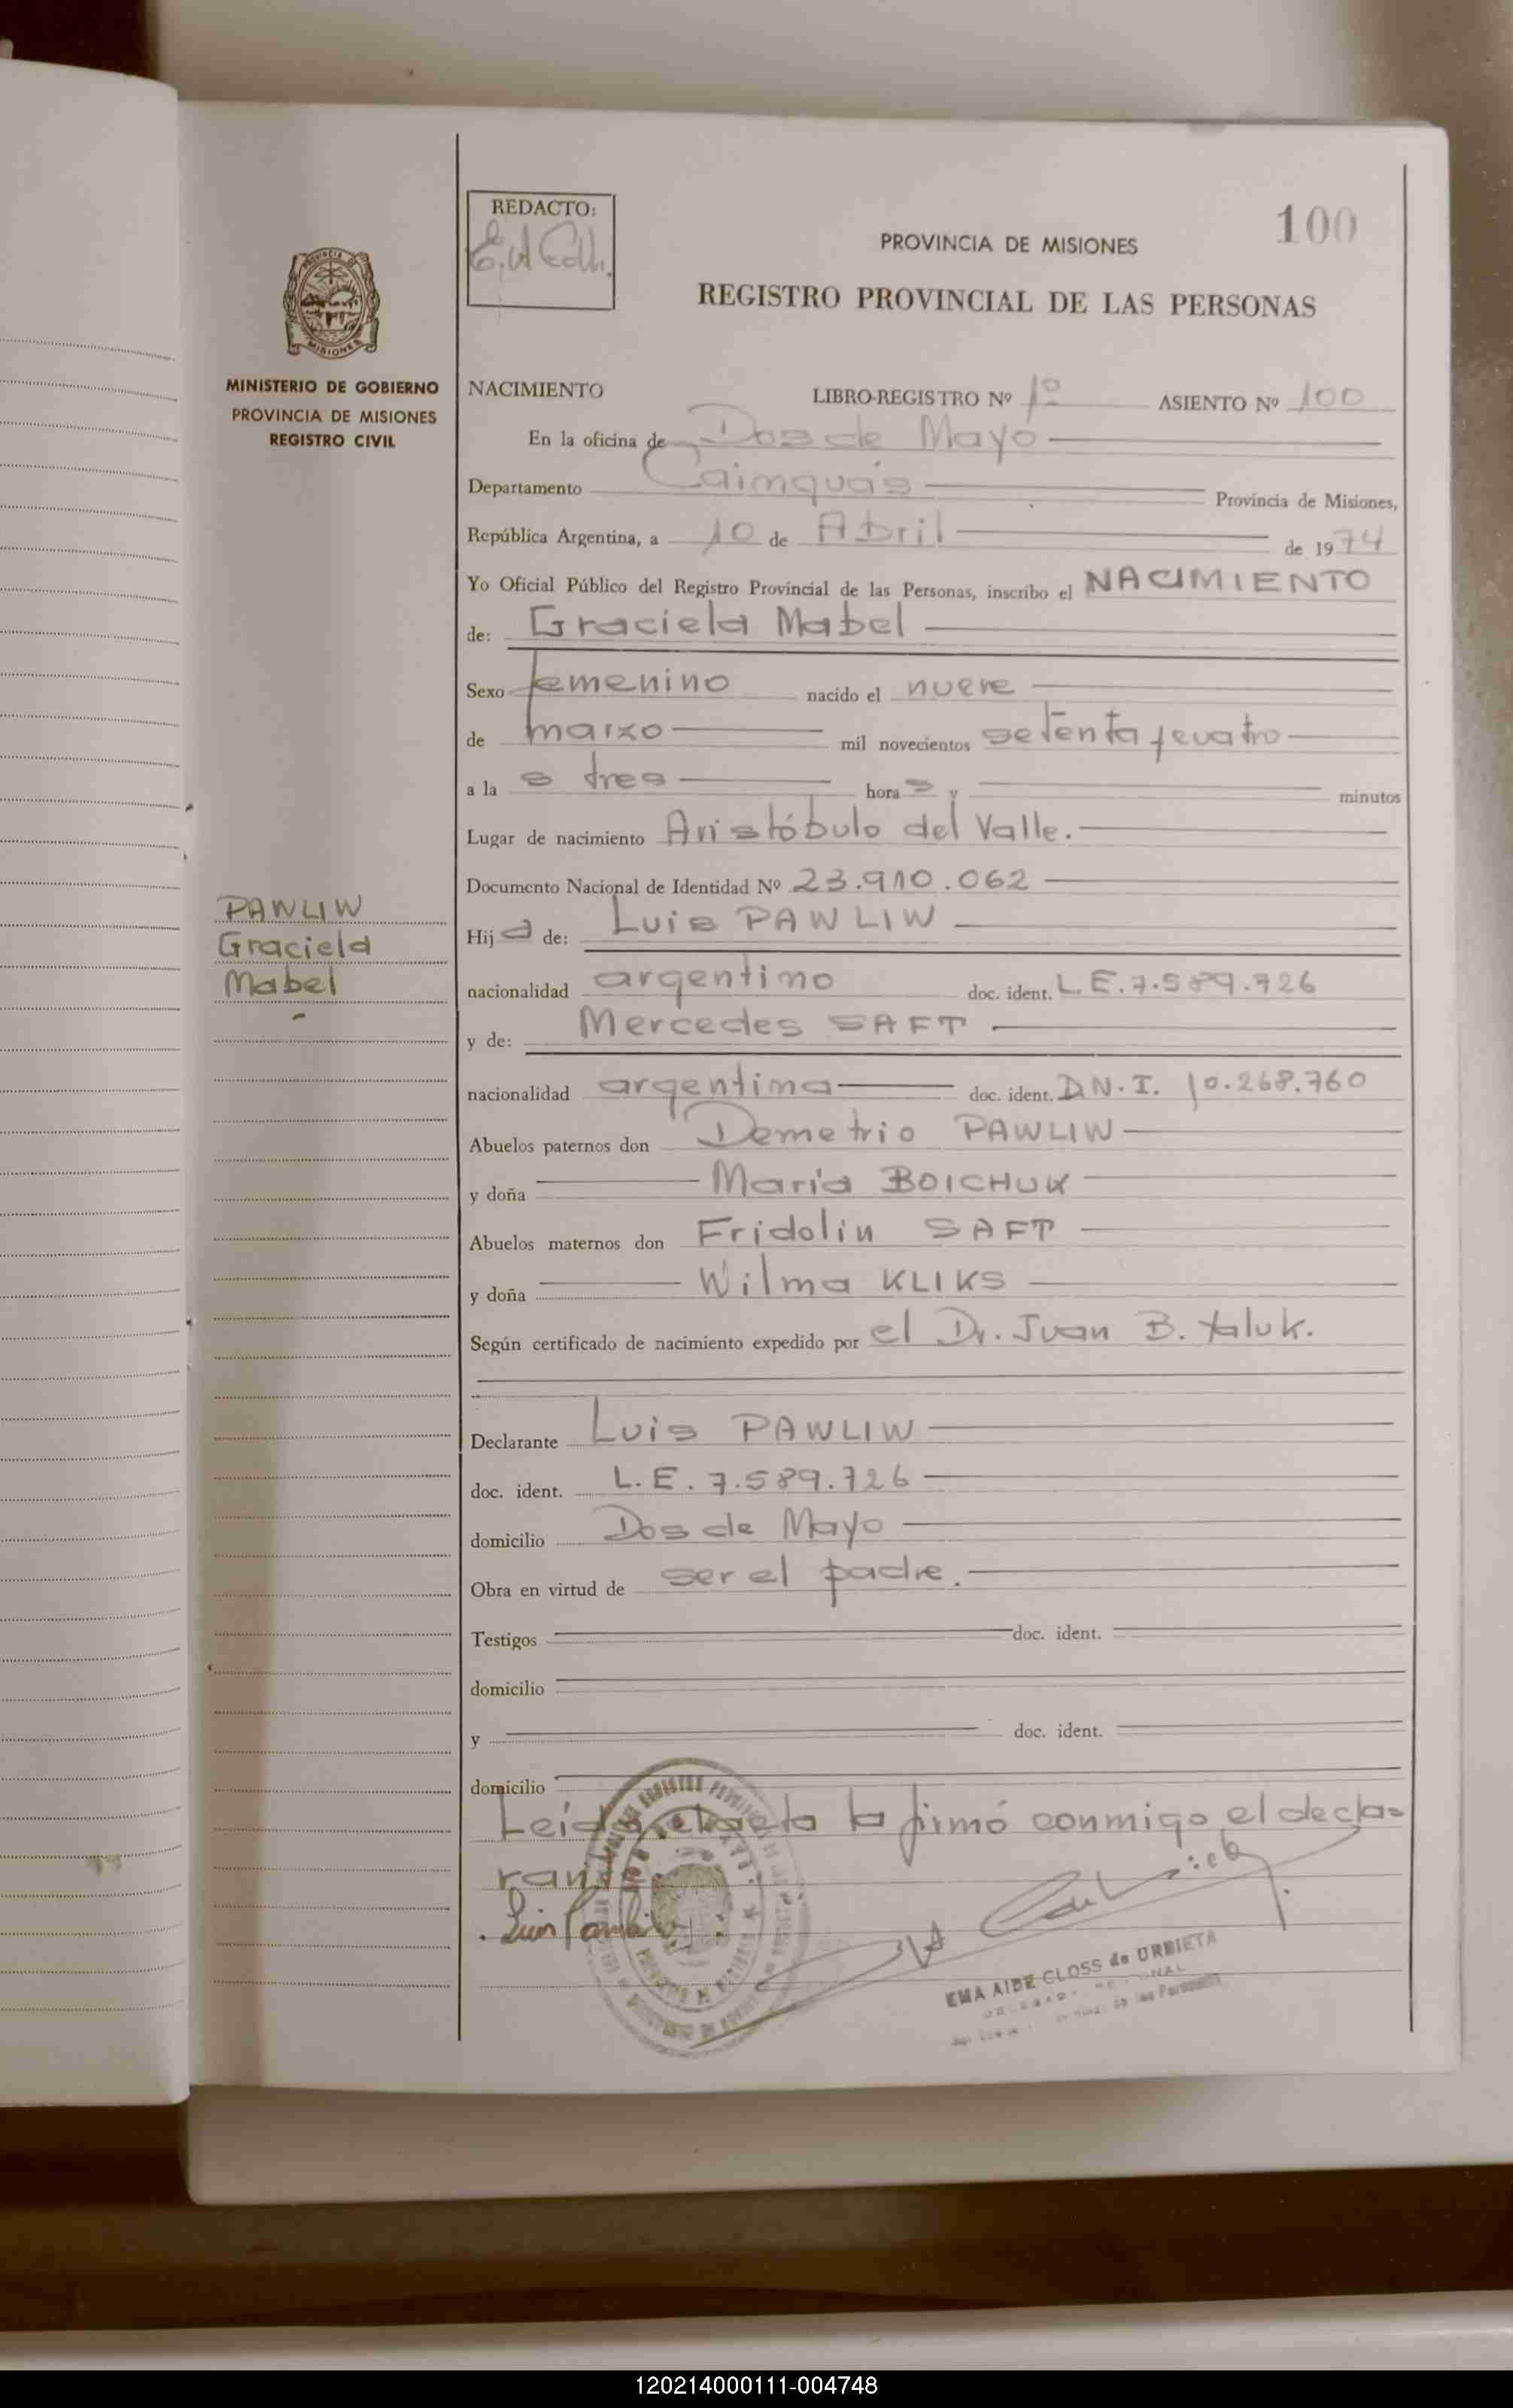 REDACTO:
100
PROVINCIA DE MISIONES
REGISTRO PROVINCIAL DE LAS PERSONAS
MISIONES
MINISTERIO DE GOBIERNO
PROVINCIA DE MISIONES
REGISTRO CIVIL
NACIMIENTO LIBRO-REGISTRO Nº 1º ASIENTO Nº 100
En la oficina de Dos de Mayo
Departamento Caimguás Provincia de Misiones,
República Argentina, a 10 de Abril de 1974
Yo Oficial Público del Registro Provincial de las Personas, inscribo el NACIMIENTO
de: Graciela Mabel
Sexo femenino nacido el nueve
de marzo mil novecientos setenta y cuatro
a la s tres hora s y minutos
Lugar de nacimiento Aristóbulo del Valle.
Documento Nacional de Identidad Nº 23.910.062
PAWLIW
Graciela
Mabel
Hij a de: Luis PAWLIW
nacionalidad argentino doc. ident. L.E. 7.589.726
y de: Mercedes SAFT
nacionalidad argentina doc. ident. D.N.I. 10.268.760
Abuelos paternos don Demetrio PAWLIW
y doña María BOICHUK
Abuelos maternos don Fridolin SAFT
y doña Wilma KLIKS
Según certificado de nacimiento expedido por el Dr. Juan B. Yaluk.
Declarante Luis PAWLIW
doc. ident. L.E. 7.589.726
domicilio Dos de Mayo
Obra en virtud de ser el padre.
Testigos doc. ident.
domicilio
y doc. ident.
domicilio
Leída el acta la firmó conmigo el decla=
rante
EMA AIDE CLOSS de URBIETA
120214000111-004748